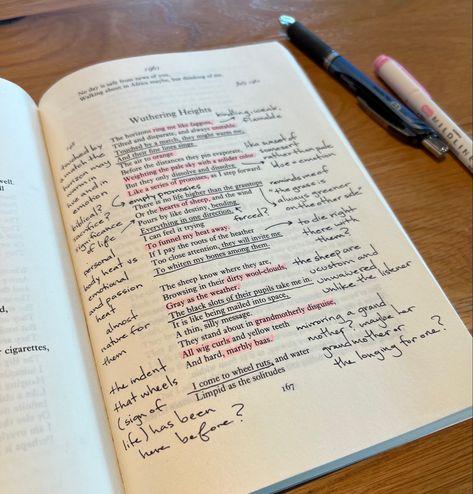 1961
No day is safe from news of you,
Walking about in Africa maybe, but thinking of me.
July 1961
Wuthering Heights
The horizons ring me like faggots,
Tilted and disparate, and always unstable.
Touched by a match, they might warm me,
And their fine lines singe
The air to orange
Before the distances they pin evaporate,
Weighting the pale sky with a solider color.
But they only dissolve and dissolve
Like a series of promises, as I step forward.
There is no life higher than the grasstops
Or the hearts of sheep, and the wind
Pours by like destiny, bending
Everything in one direction.
I can feel it trying
To funnel my heat away.
If I pay the roots of the heather
Too close attention, they will invite me
To whiten my bones among them.
The sheep know where they are,
Browsing in their dirty wool-clouds,
Gray as the weather.
The black slots of their pupils take me in.
It is like being mailed into space,
A thin, silly message.
They stand about in grandmotherly disguise,
All wig curls and yellow teeth
And hard, marbly baas.
I come to wheel ruts, and water
Limpid as the solitudes
167
touched by
a match the
sun
warm in
we and in
emotion
biblical?
sacrifice?
significance
of life
personal
body heat vs
emotional
and passion
heat
almost
nature for
them
the indent
that wheels
(sign of
life) has been
here before?
kindling, weak
flamable
like sunset
transparent
rather than pale
use = emotion
empty promises
reminds me of
"the grass is
always greener
on the other side"
forced?
to die right
there with
them?
the sheep are
custom and
unwavered
unlike the listener
mirroring a grand
mother? maybe her
grandmother or
the longing for one?
well.
cigarettes,
MILDLIN